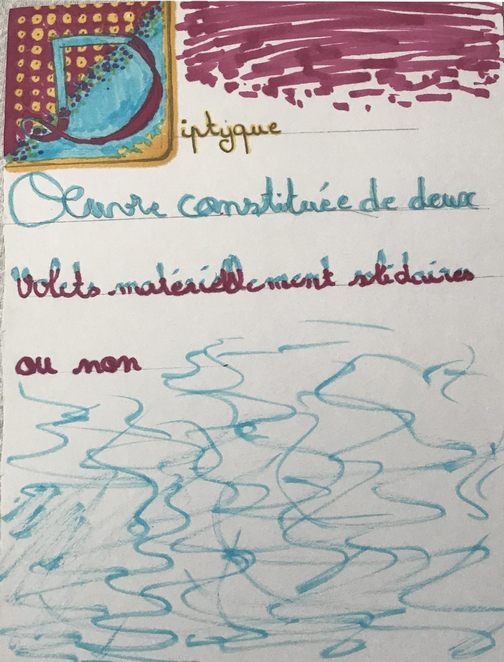 Diptyque
Oeuvre constituée de deux
Volets matériellement solidaires
ou non